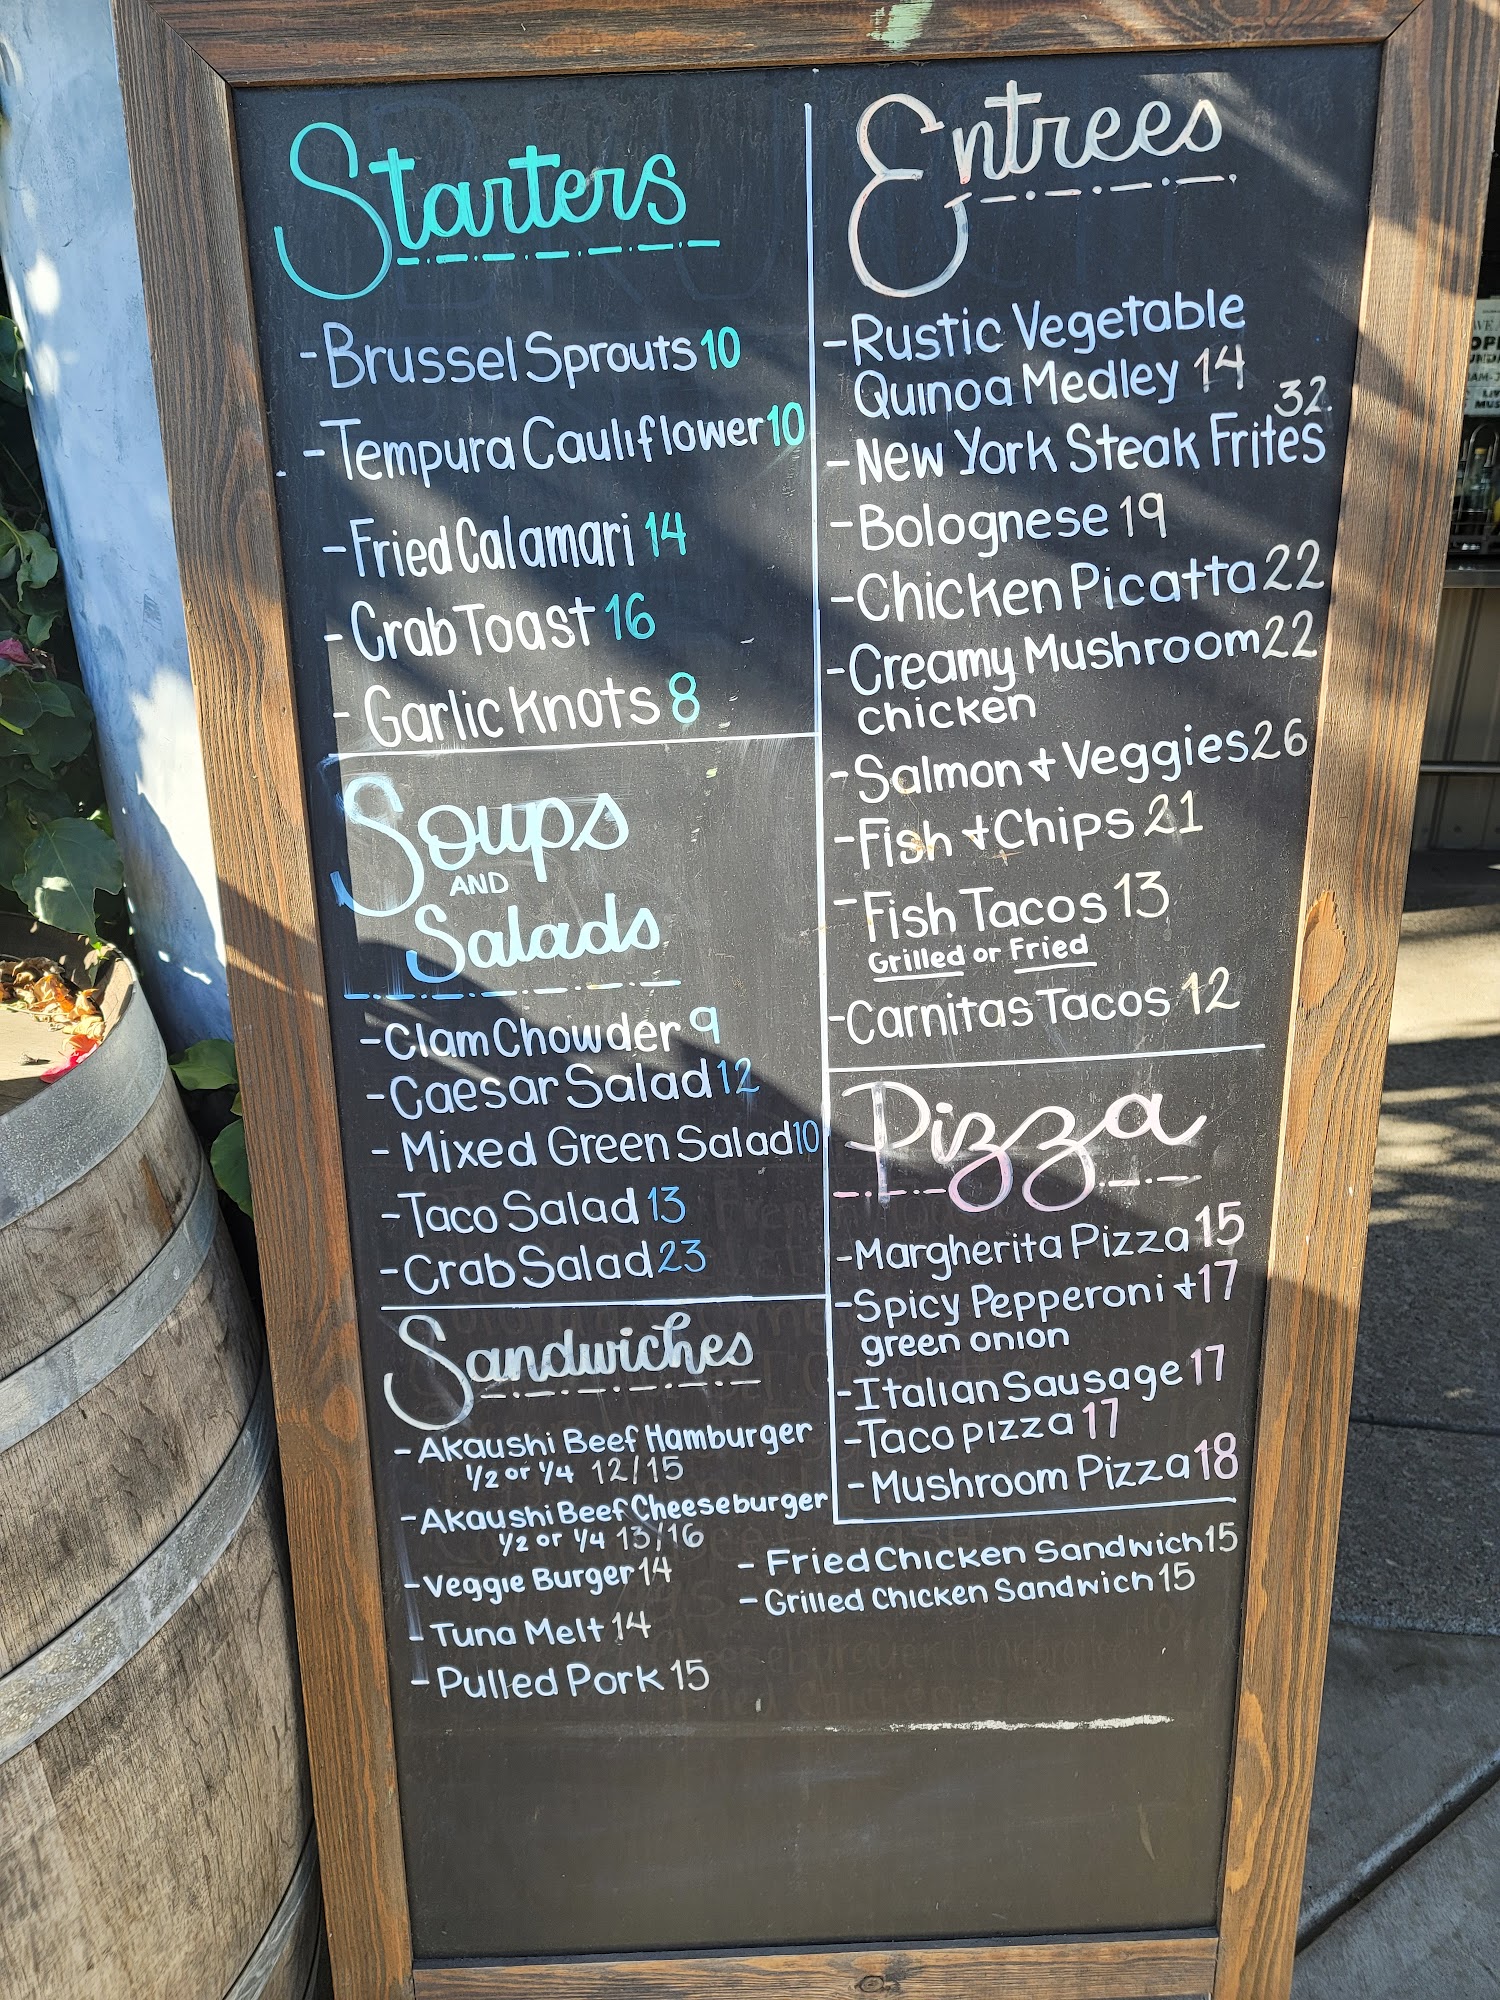 Starters
-Brussel Sprouts 10
-Tempura Cauliflower 10
-Fried Calamari 14
-Crab Toast 16
- Garlic Knots 8
Soups
AND
Salads
-Clam Chowder 9
-Caesar Salad 12
- Mixed Green Salad 10
-Taco Salad 13
-Crab Salad 23
Sandwiches
- Akaushi Beef Hamburger
1/2 or 1/4 12/15
-Akaushi Beef Cheeseburger
1/2 or 1/4 13/16
-Veggie Burger 14
-Tuna Melt 14
-Pulled Pork 15
- Fried Chicken Sandwich 15
- Grilled Chicken Sandwich 15
Entrees
-Rustic Vegetable
Quinoa Medley 14
32
-New York Steak Frites
-Bolognese 19
-Chicken Picatta 22
-Creamy Mushroom 22
chicken
-Salmon + Veggies 26
-Fish + Chips 21
-Fish Tacos 13
Grilled or Fried
-Carnitas Tacos 12
Pizza
-Margherita Pizza 15
-Spicy Pepperoni + 17
green onion
-Italian Sausage 17
-Taco pizza 17
-Mushroom Pizza 18